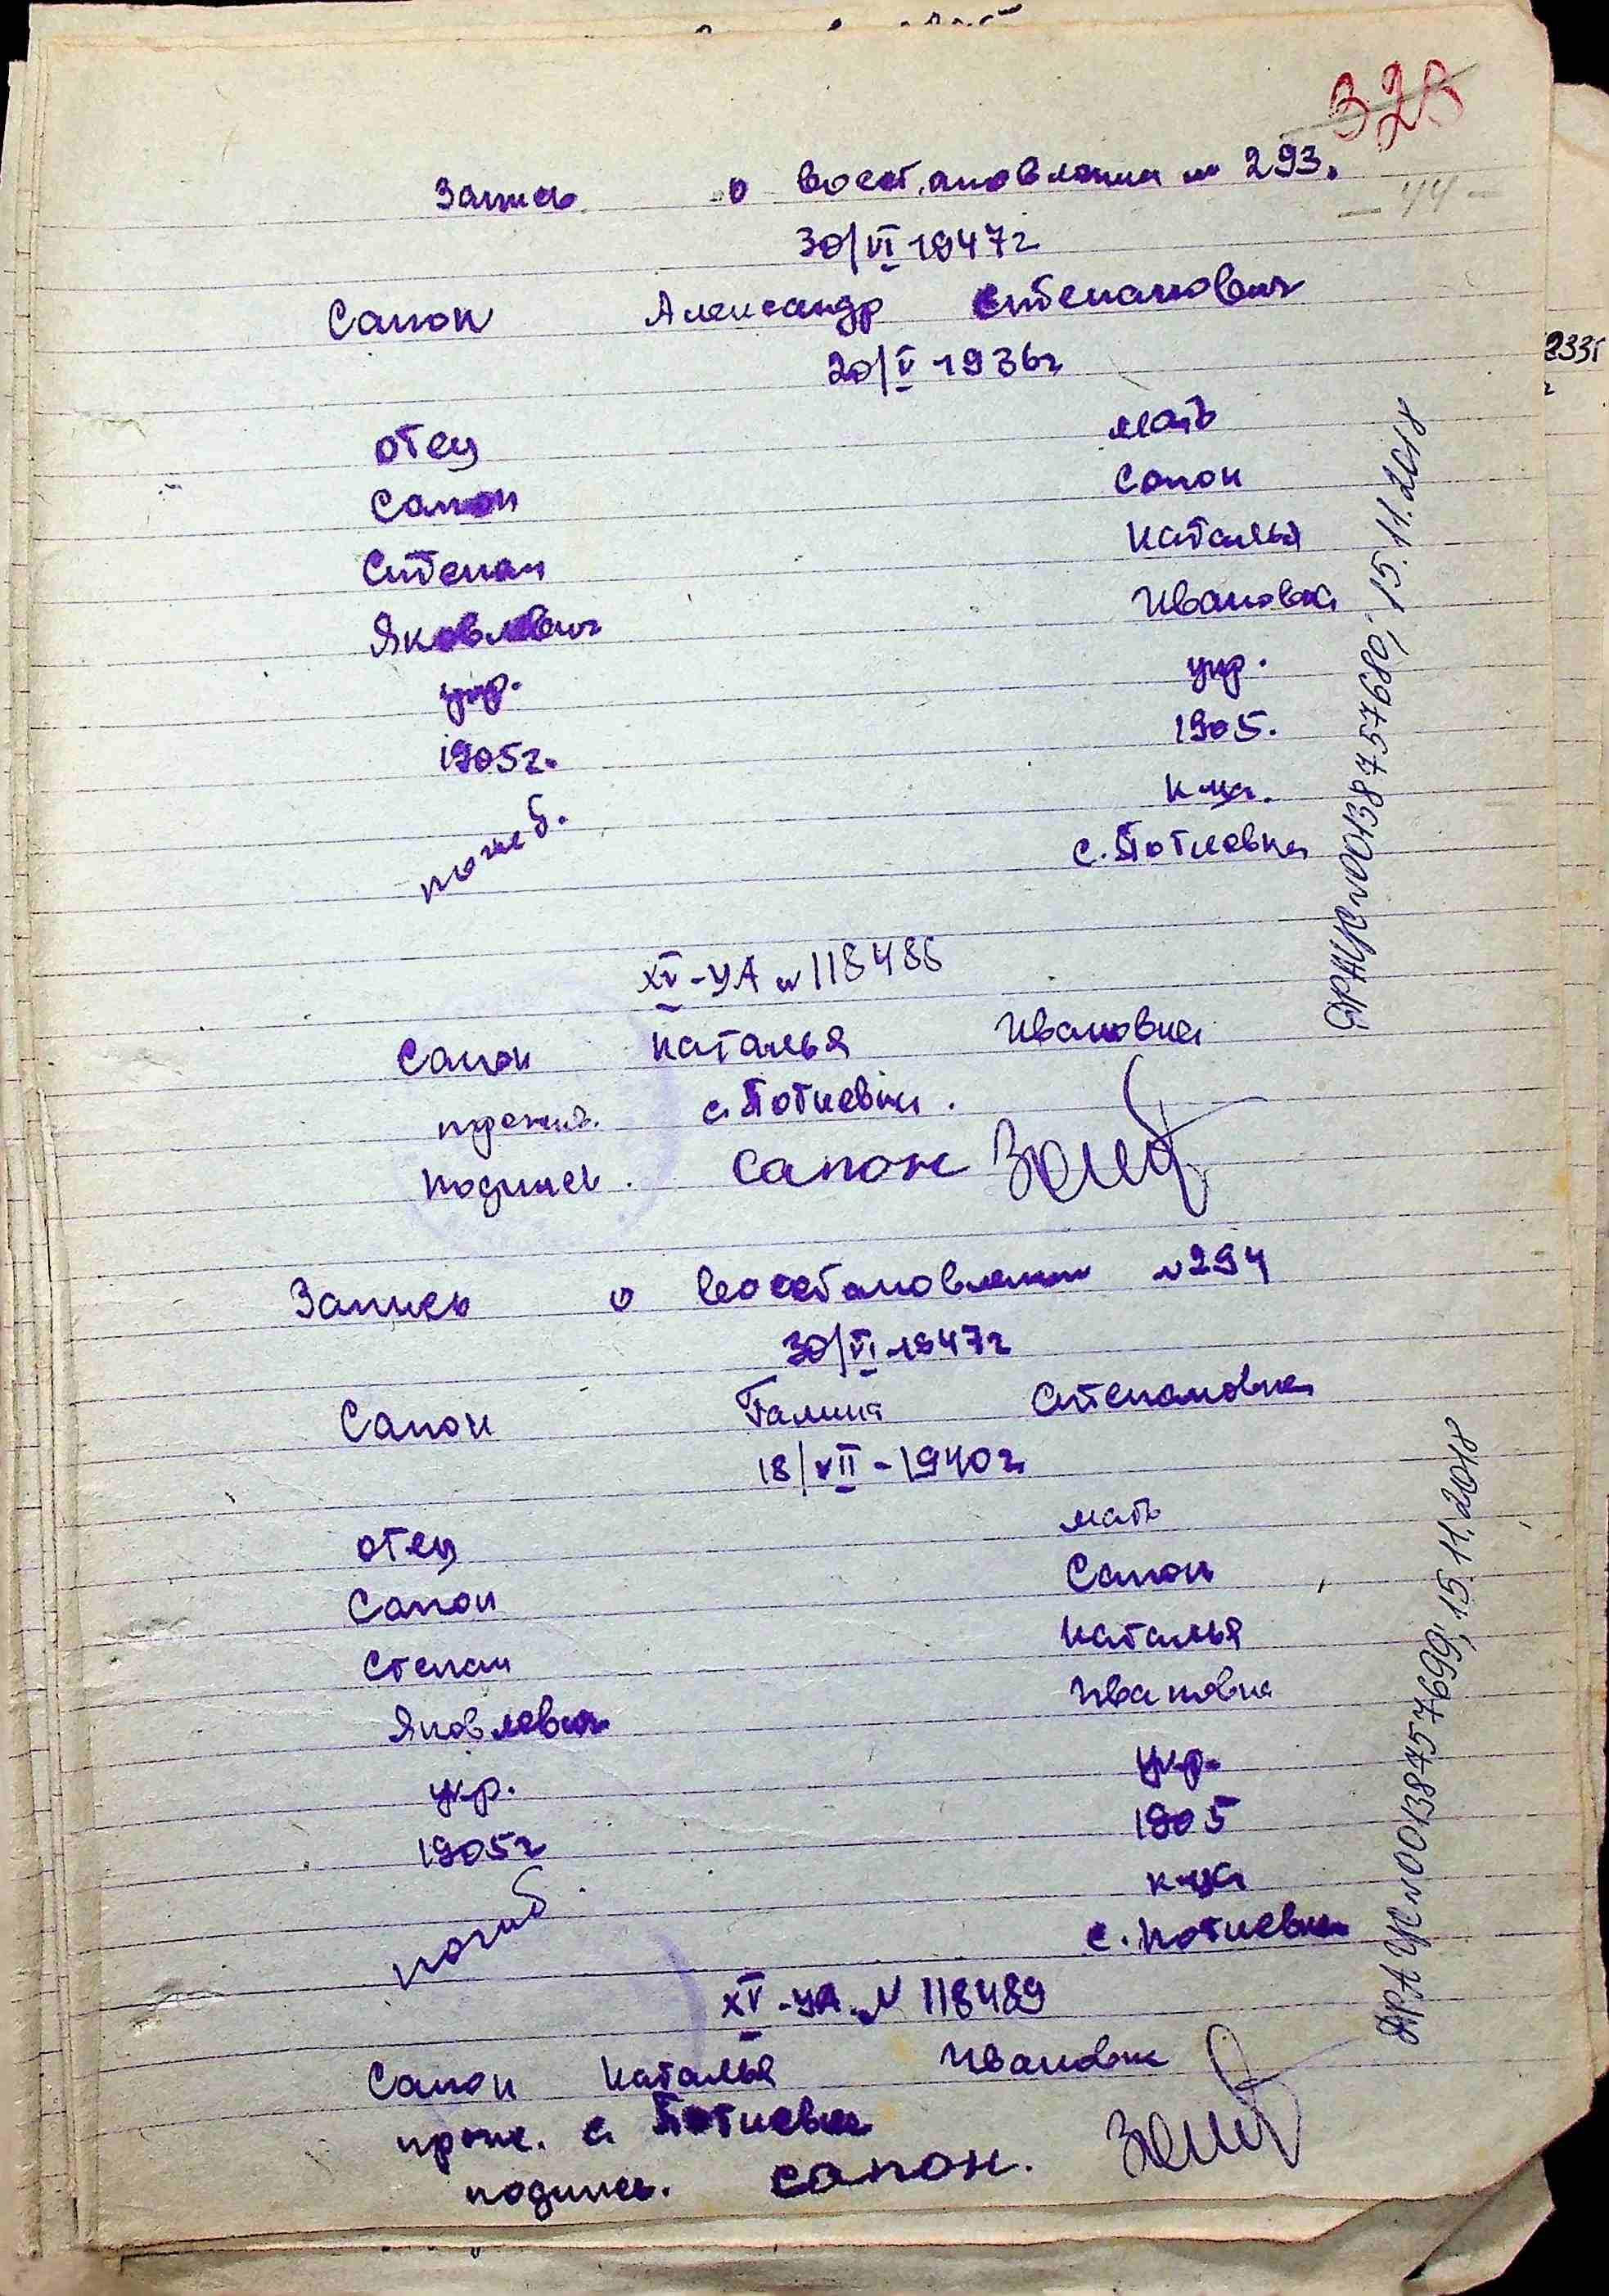 328
Запись о восстановлении № 293.
- 44 -
30/VI 1947г
Сапон Александр Степанович
20/V 1936г
отец мать
Сапон Сапон
Степан Наталья
Яковлевич Ивановна
укр. укр.
1905г. 1905.
погиб. к-ца.
с. Потиевка
XV-УА № 118488
Сапон Наталья Ивановна
прожив. с. Потиевка.
подпись. Сапон
Запись о восстановлении № 294
30/VI 1947г
Сапон Галина Степановна
18/VII-1940г
отец мать
Сапон Сапон
Степан Наталья
Яковлевич Ивановна
укр. укр.
1905г 1905
погиб. к-ца
с. Потиевка
XV-УА № 118489
Сапон Наталья Ивановна
прож. с. Потиевка
подпись. Сапон.
ДРАЦС №00138757680, 15.11.2018
ДРАЦС №001387457699, 15.11.2018